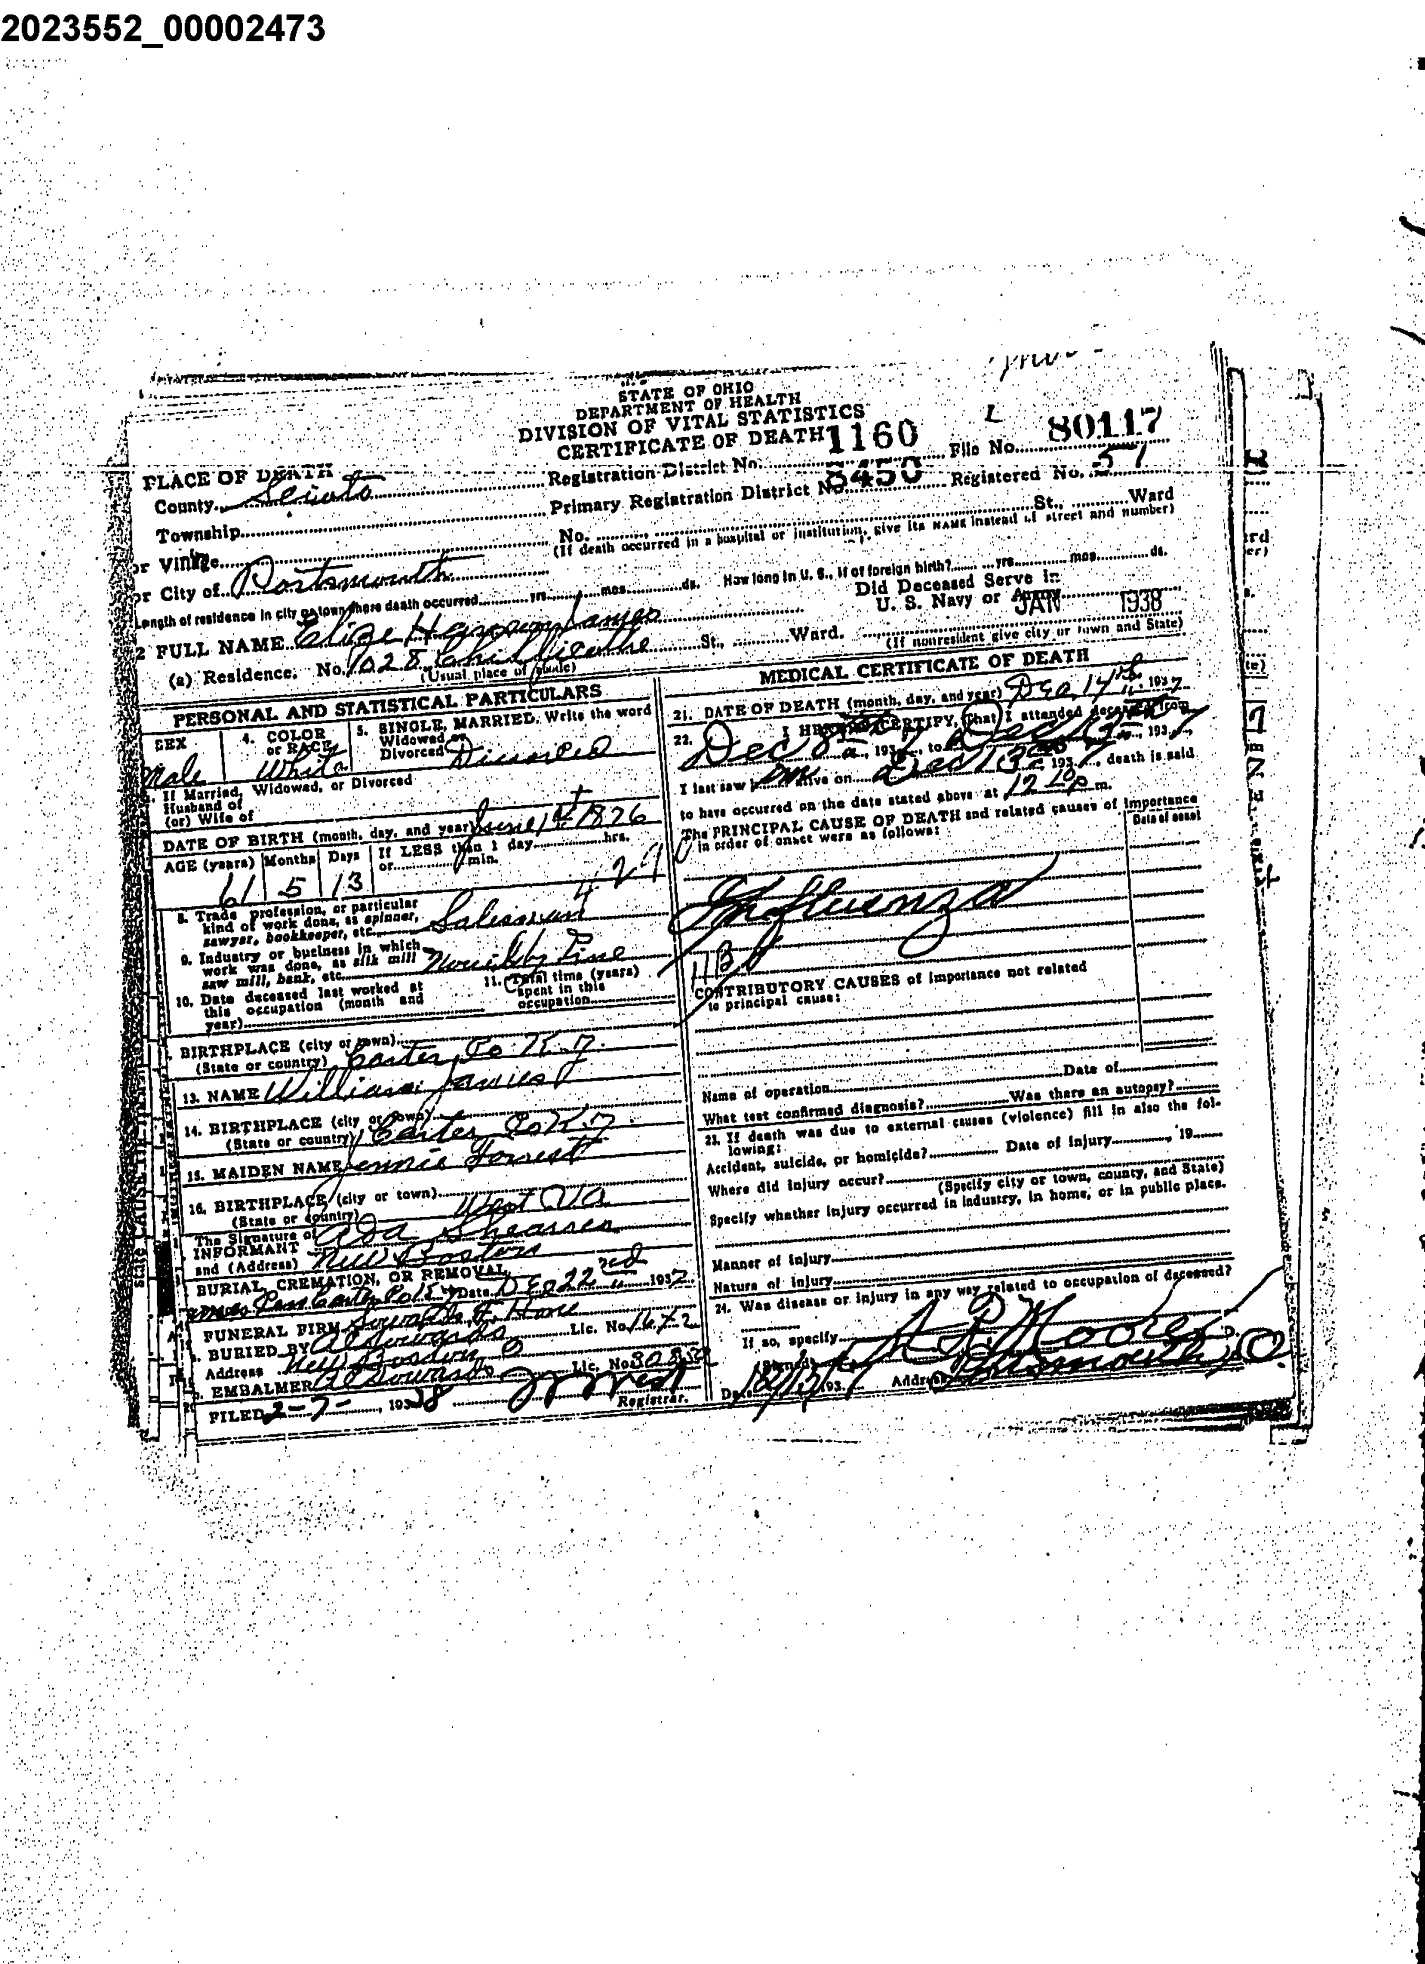 2023552_00002473
STATE OF OHIO
DEPARTMENT OF HEALTH
DIVISION OF VITAL STATISTICS
CERTIFICATE OF DEATH
1160
PLACE OF DEATH
Registration District No.
File No. 80117
County Scioto
Primary Registration District No. 8450
Registered No. 51
Township
No. St., Ward
(If death occurred in a hospital or institution, give its NAME instead of street and number)
or Village
or City of Portsmouth
Length of residence in city or town where death occurred yrs. mos. ds. How long in U. S., if of foreign birth? yrs. mos. ds.
Did Deceased Serve in
U. S. Navy or Army
JAN 1938
2 FULL NAME James
(a) Residence. No. 1028 Chillicothe St., Ward.
(Usual place of abode) (If nonresident give city or town and State)
PERSONAL AND STATISTICAL PARTICULARS
SEX Male
4. COLOR or RACE White
5. SINGLE, MARRIED, Write the word Widowed or Divorced Divorced
If Married, Widowed, or Divorced
Husband of
(or) Wife of
DATE OF BIRTH (month, day, and year) June 1st 1876
AGE (years) 61 Months 5 Days 13 If LESS than 1 day hrs. or min.
8. Trade, profession, or particular kind of work done, as spinner, sawyer, bookkeeper, etc. Salesman
9. Industry or business in which work was done, as silk mill saw mill, bank, etc.
10. Date deceased last worked at this occupation (month and year)
11. Total time (years) spent in this occupation
BIRTHPLACE (city or town)
(State or country) Carter Co Ky.
13. NAME William James
14. BIRTHPLACE (city or town)
(State or country) Carter Co Ky.
15. MAIDEN NAME Jennie Forrest
16. BIRTHPLACE (city or town)
(State or country) West Va
The Signature of INFORMANT Ada
and (Address) New Boston
BURIAL, CREMATION, OR REMOVAL
Carter Co Ky Date Dec 22nd 1937
FUNERAL FIRM Sowards F. Home Lic. No.
BURIED BY Sowards
Address New Boston O
EMBALMER Sowards Lic. No.
FILED 2-7-, 1938 Registrar.
MEDICAL CERTIFICATE OF DEATH
21. DATE OF DEATH (month, day, and year) Dec 14th, 1937
22. I HEREBY CERTIFY, That I attended deceased from
Dec 8, 1937, to Dec 13, 1937
I last saw him alive on Dec 13, 1937, death is said
to have occurred on the date stated above at 12 10 p m.
The PRINCIPAL CAUSE OF DEATH and related causes of importance
in order of onset were as follows:
Date of onset
Influenza
11B
CONTRIBUTORY CAUSES of importance not related
to principal cause:
Name of operation Date of
What test confirmed diagnosis? Was there an autopsy?
23. If death was due to external causes (violence) fill in also the following:
Accident, suicide, or homicide? Date of injury, 19
Where did injury occur?
(Specify city or town, county, and State)
Specify whether injury occurred in industry, in home, or in public place.
Manner of injury
Nature of injury
24. Was disease or injury in any way related to occupation of deceased?
If so, specify
(Signed) Moore
Date 193 Address Portsmouth, O